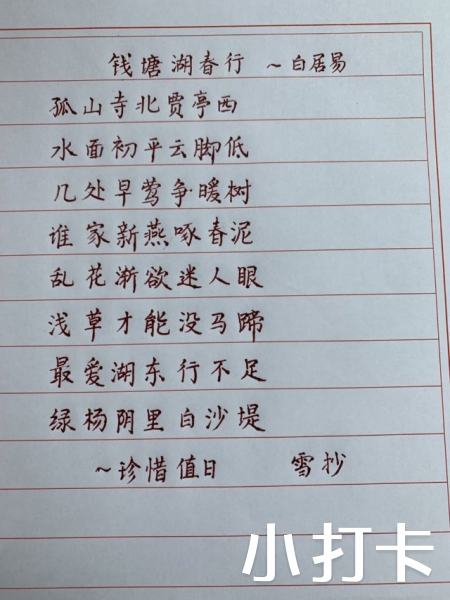 钱塘湖春行 ~白居易
孤山寺北贾亭西
水面初平云脚低
几处早莺争暖树
谁家新燕啄春泥
乱花渐欲迷人眼
浅草才能没马蹄
最爱湖东行不足
绿杨阴里白沙堤
~珍惜值日 雪抄
小打卡